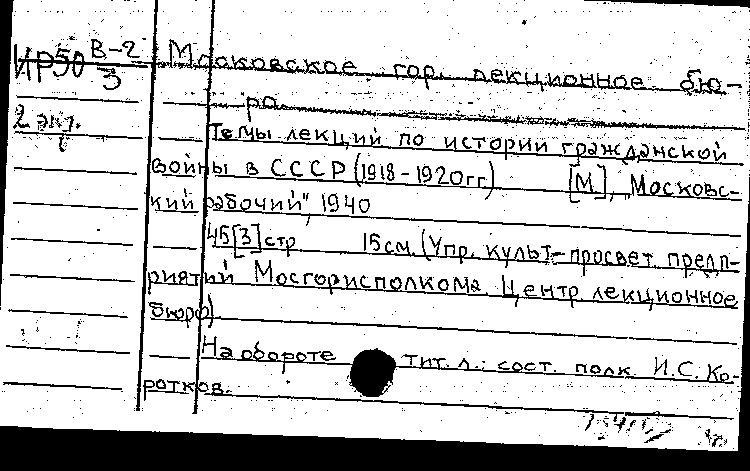 ИР50 В-2/3
Московское гор. лекционное бю-
ро.
2 экз.
Темы лекций по истории гражданской
войны в СССР (1918-1920гг) [М], „Московс-
кий рабочий", 1940
45[3]стр 15см. (Упр. культ-просвет. предп-
риятий Мосгорисполкома. Центр. лекционное
бюро)
На обороте тит. л.: сост. полк. И.С. Ко-
ротков.